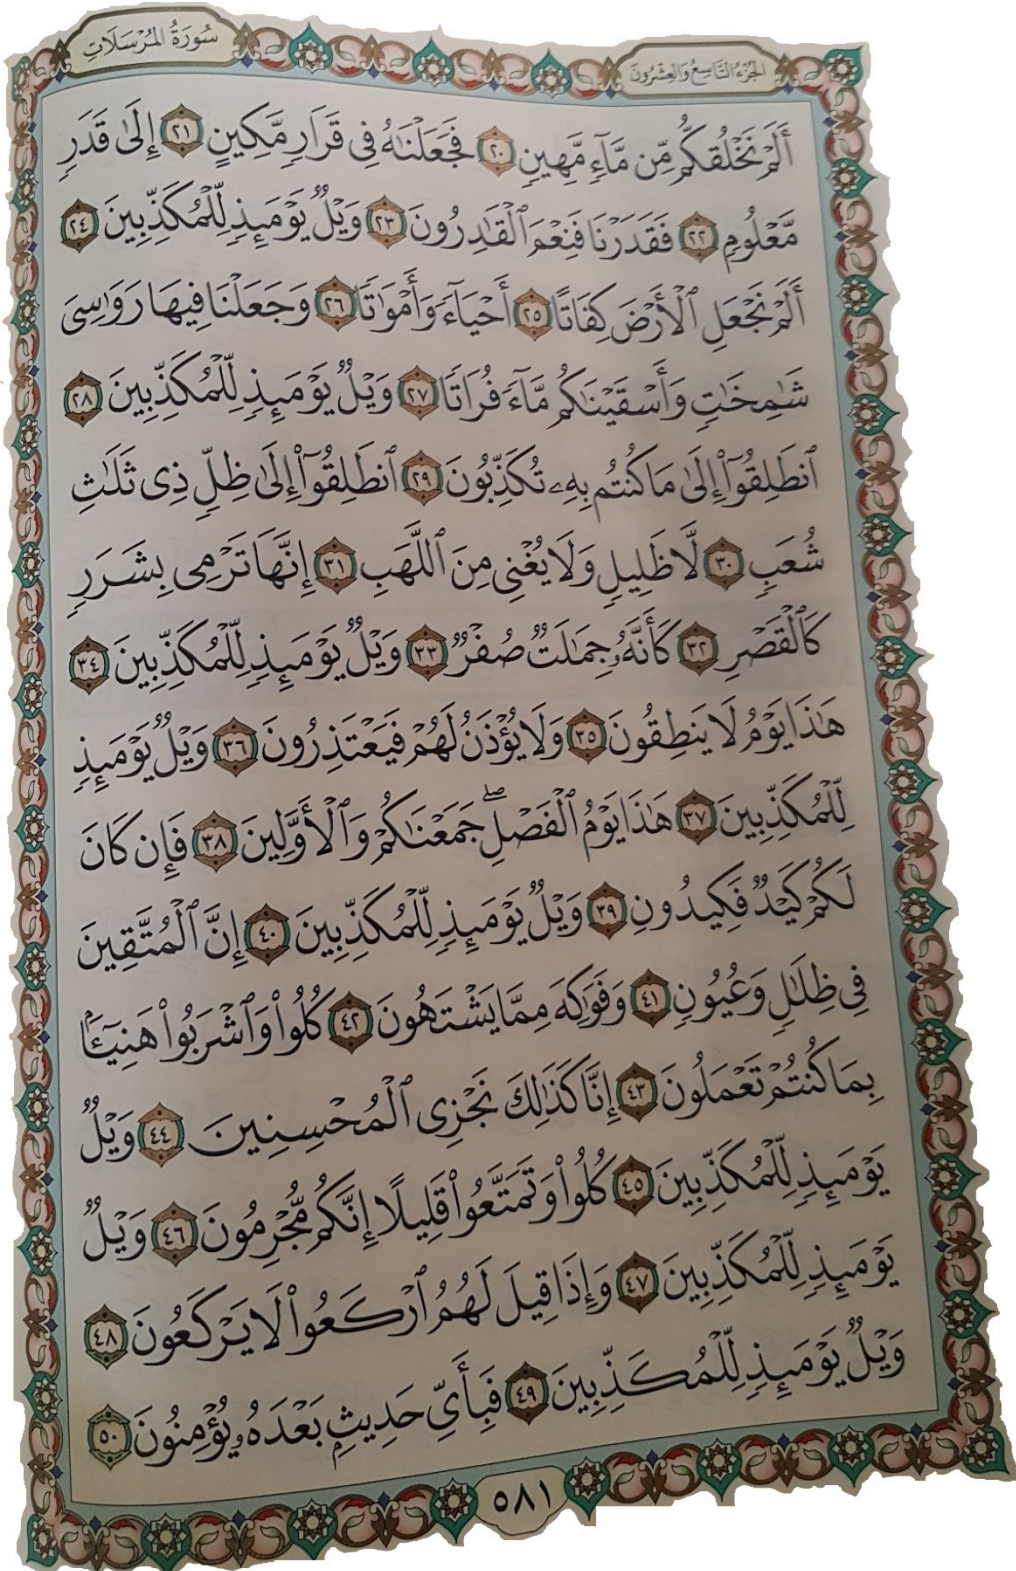 سُورَةُ المُرْسَلَاتِ
الجُزْءُ التَّاسِعُ وَالعِشْرُونَ
أَلَمْ نَخْلُقكُّم مِّن مَّآءٍ مَّهِينٍ ٢٠ فَجَعَلْنَٰهُ فِى قَرَارٍ مَّكِينٍ ٢١ إِلَىٰ قَدَرٍ
مَّعْلُومٍ ٢٢ فَقَدَرْنَا فَنِعْمَ ٱلْقَٰدِرُونَ ٢٣ وَيْلٌ يَوْمَئِذٍ لِّلْمُكَذِّبِينَ ٢٤
أَلَمْ نَجْعَلِ ٱلْأَرْضَ كِفَاتًا ٢٥ أَحْيَآءً وَأَمْوَٰتًا ٢٦ وَجَعَلْنَا فِيهَا رَوَٰسِىَ
شَٰمِخَٰتٍ وَأَسْقَيْنَٰكُم مَّآءً فُرَاتًا ٢٧ وَيْلٌ يَوْمَئِذٍ لِّلْمُكَذِّبِينَ ٢٨
ٱنطَلِقُوٓا۟ إِلَىٰ مَا كُنتُم بِهِۦ تُكَذِّبُونَ ٢٩ ٱنطَلِقُوٓا۟ إِلَىٰ ظِلٍّ ذِى ثَلَٰثِ
شُعَبٍ ٣٠ لَّا ظَلِيلٍ وَلَا يُغْنِى مِنَ ٱللَّهَبِ ٣١ إِنَّهَا تَرْمِى بِشَرَرٍ
كَٱلْقَصْرِ ٣٢ كَأَنَّهُۥ جِمَٰلَتٌ صُفْرٌ ٣٣ وَيْلٌ يَوْمَئِذٍ لِّلْمُكَذِّبِينَ ٣٤
هَٰذَا يَوْمُ لَا يَنطِقُونَ ٣٥ وَلَا يُؤْذَنُ لَهُمْ فَيَعْتَذِرُونَ ٣٦ وَيْلٌ يَوْمَئِذٍ
لِّلْمُكَذِّبِينَ ٣٧ هَٰذَا يَوْمُ ٱلْفَصْلِ ۖ جَمَعْنَٰكُمْ وَٱلْأَوَّلِينَ ٣٨ فَإِن كَانَ
لَكُمْ كَيْدٌ فَكِيدُونِ ٣٩ وَيْلٌ يَوْمَئِذٍ لِّلْمُكَذِّبِينَ ٤٠ إِنَّ ٱلْمُتَّقِينَ
فِى ظِلَٰلٍ وَعُيُونٍ ٤١ وَفَوَٰكِهَ مِمَّا يَشْتَهُونَ ٤٢ كُلُوا۟ وَٱشْرَبُوا۟ هَنِيٓـًٔۢا
بِمَا كُنتُمْ تَعْمَلُونَ ٤٣ إِنَّا كَذَٰلِكَ نَجْزِى ٱلْمُحْسِنِينَ ٤٤ وَيْلٌ
يَوْمَئِذٍ لِّلْمُكَذِّبِينَ ٤٥ كُلُوا۟ وَتَمَتَّعُوا۟ قَلِيلًا إِنَّكُم مُّجْرِمُونَ ٤٦ وَيْلٌ
يَوْمَئِذٍ لِّلْمُكَذِّبِينَ ٤٧ وَإِذَا قِيلَ لَهُمُ ٱرْكَعُوا۟ لَا يَرْكَعُونَ ٤٨
وَيْلٌ يَوْمَئِذٍ لِّلْمُكَذِّبِينَ ٤٩ فَبِأَىِّ حَدِيثٍۭ بَعْدَهُۥ يُؤْمِنُونَ ٥٠
٥٨١